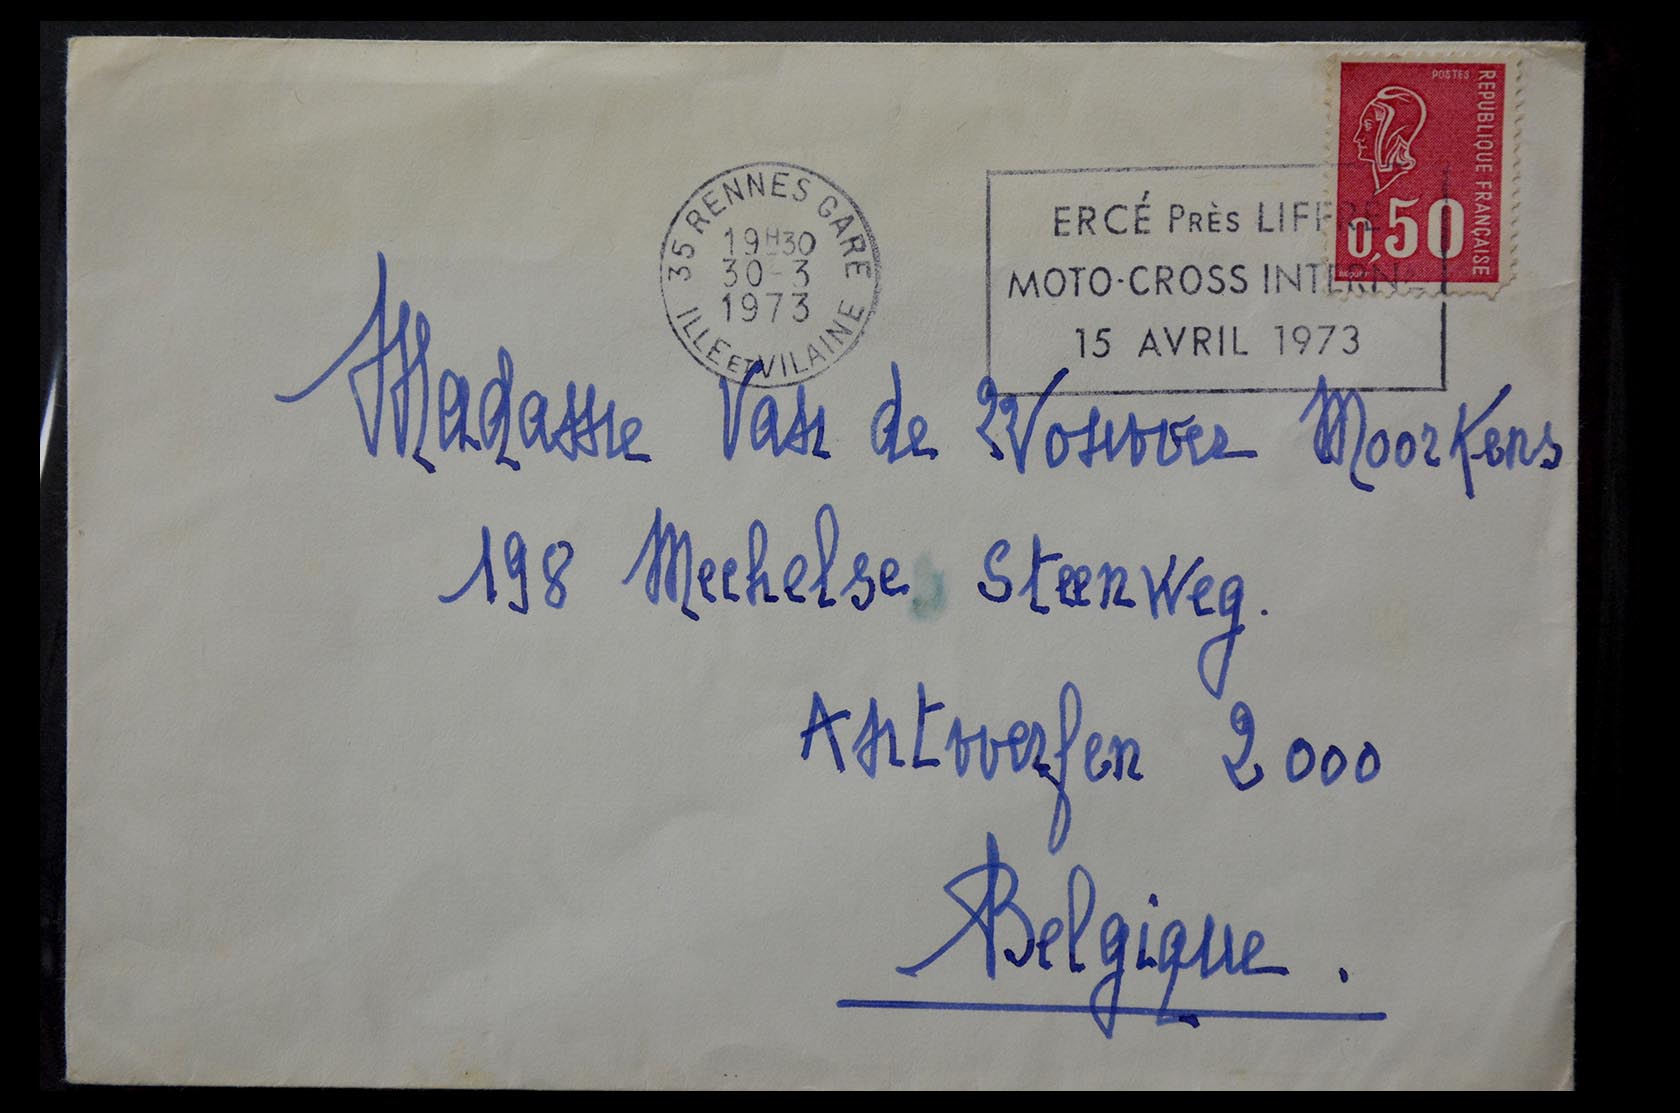 POSTES
REPUBLIQUE FRANÇAISE
0,50
35 RENNES GARE
19H30
30-3
1973
ILLE ET VILAINE
ERCÉ PRÈS LIFFRE
MOTO-CROSS INTERN
15 AVRIL 1973
Madame Van de Moorkens
198 Mechelse Steenweg.
Antwerpen 2000
Belgique.